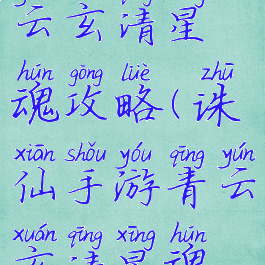 云玄清星
hún gōng lüè zhū
魂攻略(诛
xiān shǒu yóu qīng yún
仙手游青云
xuán qīng xīng hún
玄清星魂